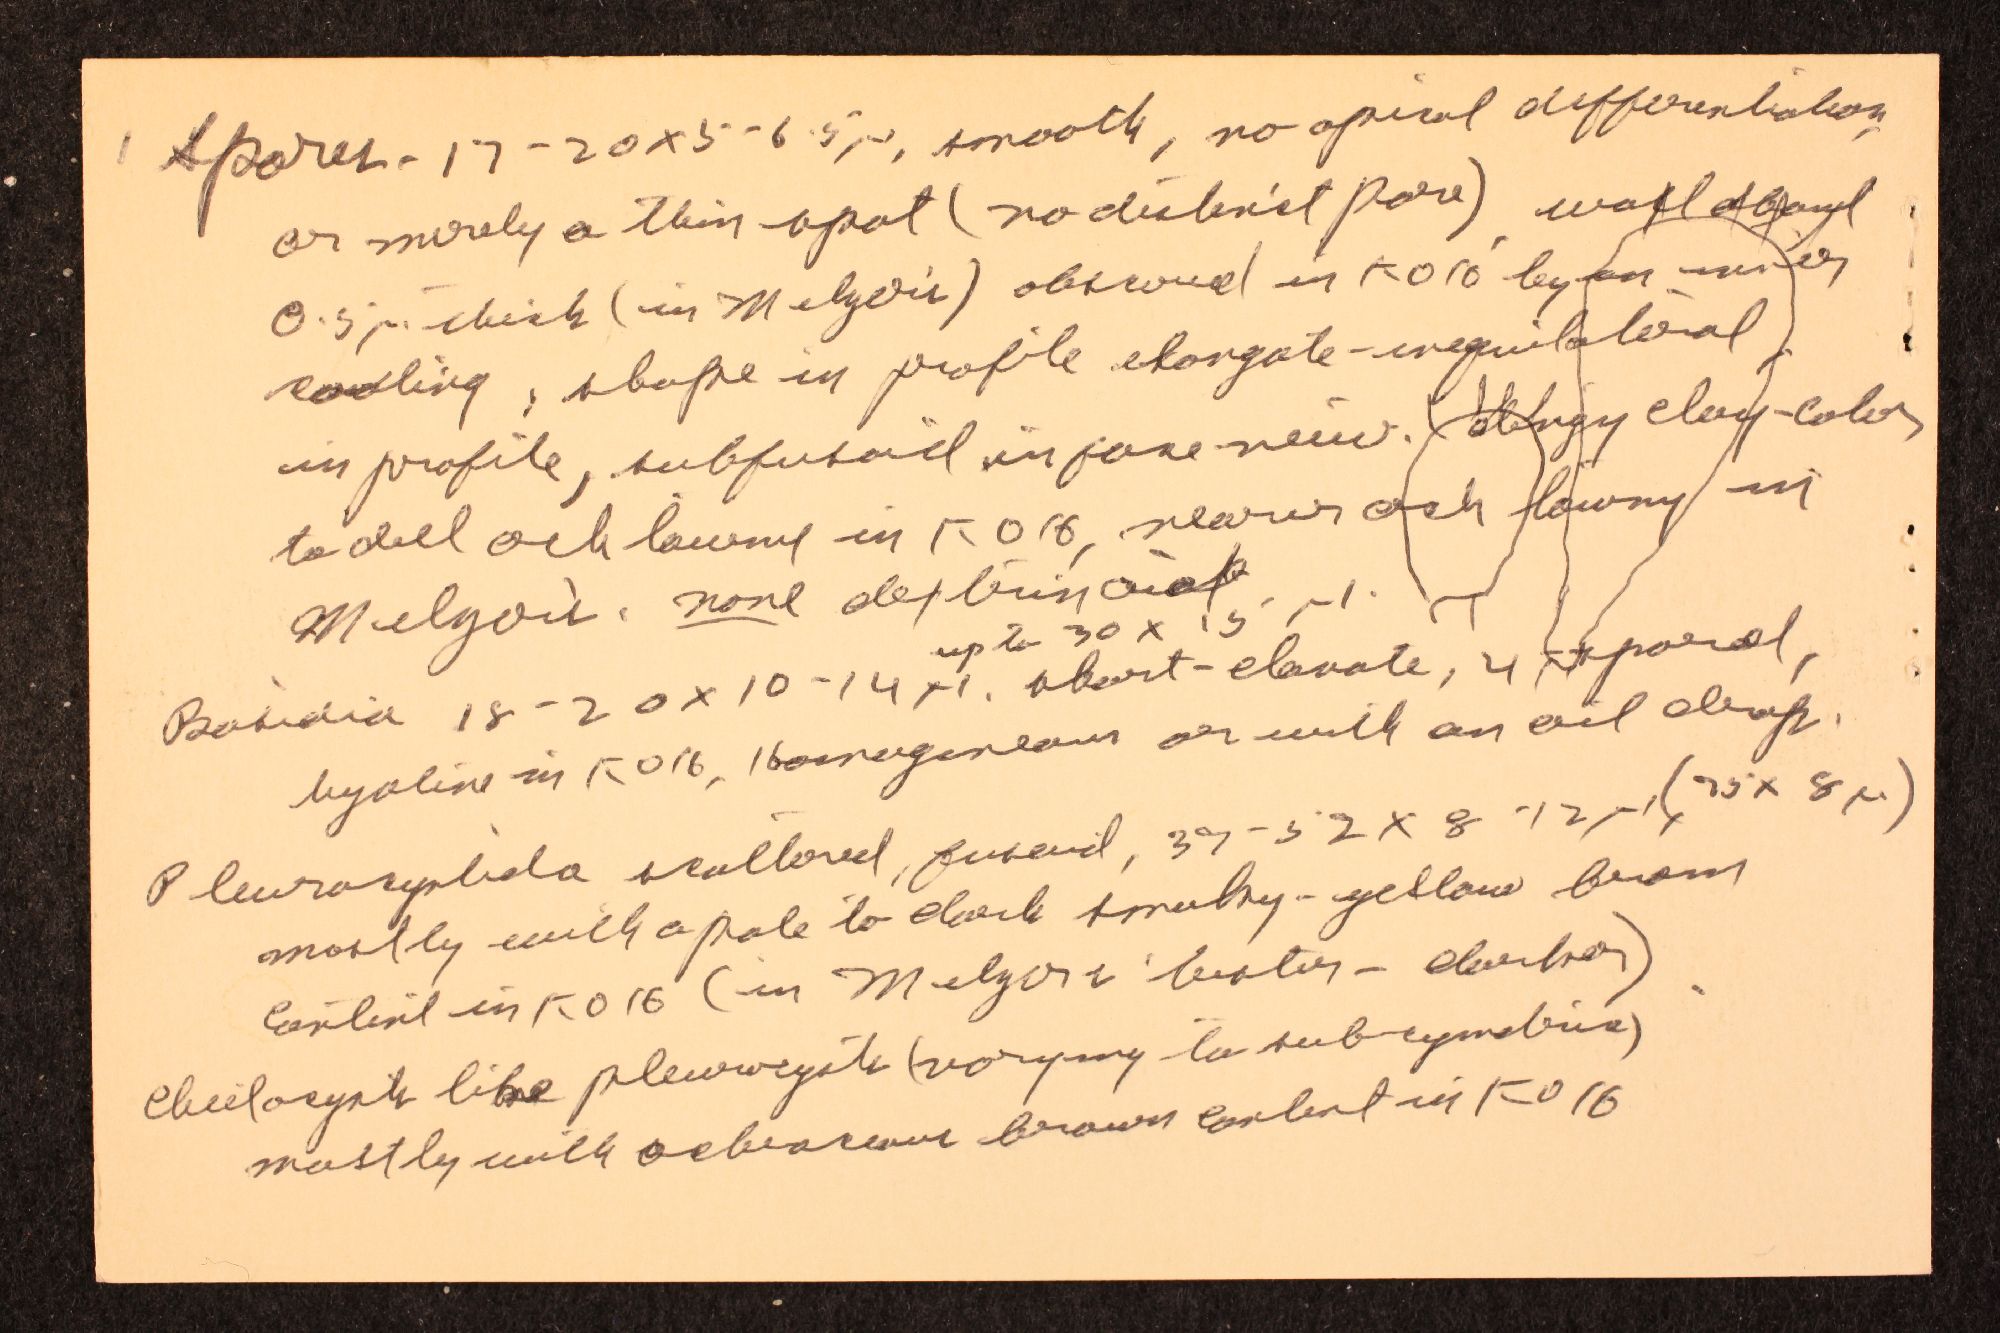 1 Spores - 17-20 x 5-6.5 µ, smooth, no apical differentiation,
or merely a thin spot (no distinct pore), wall about
0.5 µ thick (in Melzers) obscured in KOH by an inner
coating, shape in profile elongate-inequilateral
in profile, subfusoid in face view. dingy clay-color
to dull och tawny in KOH, nearer och tawny in
Melzers. none dextrinoid
up to 30 x 15 µ.
Basidia 18-20 x 10-14 µ. short-clavate, 4 spored,
hyaline in KOH, homogeneous or with an oil drop.
Pleurocystidia scattered, fusoid, 37-52 x 8-12 µ, (75 x 8 µ)
mostly with a pale to dark smoky-yellow brown
content in KOH (in Melzers darker)
Cheilocysts like pleurocysts (varying to subcylindric)
mostly with ochraceous brown content in KOH